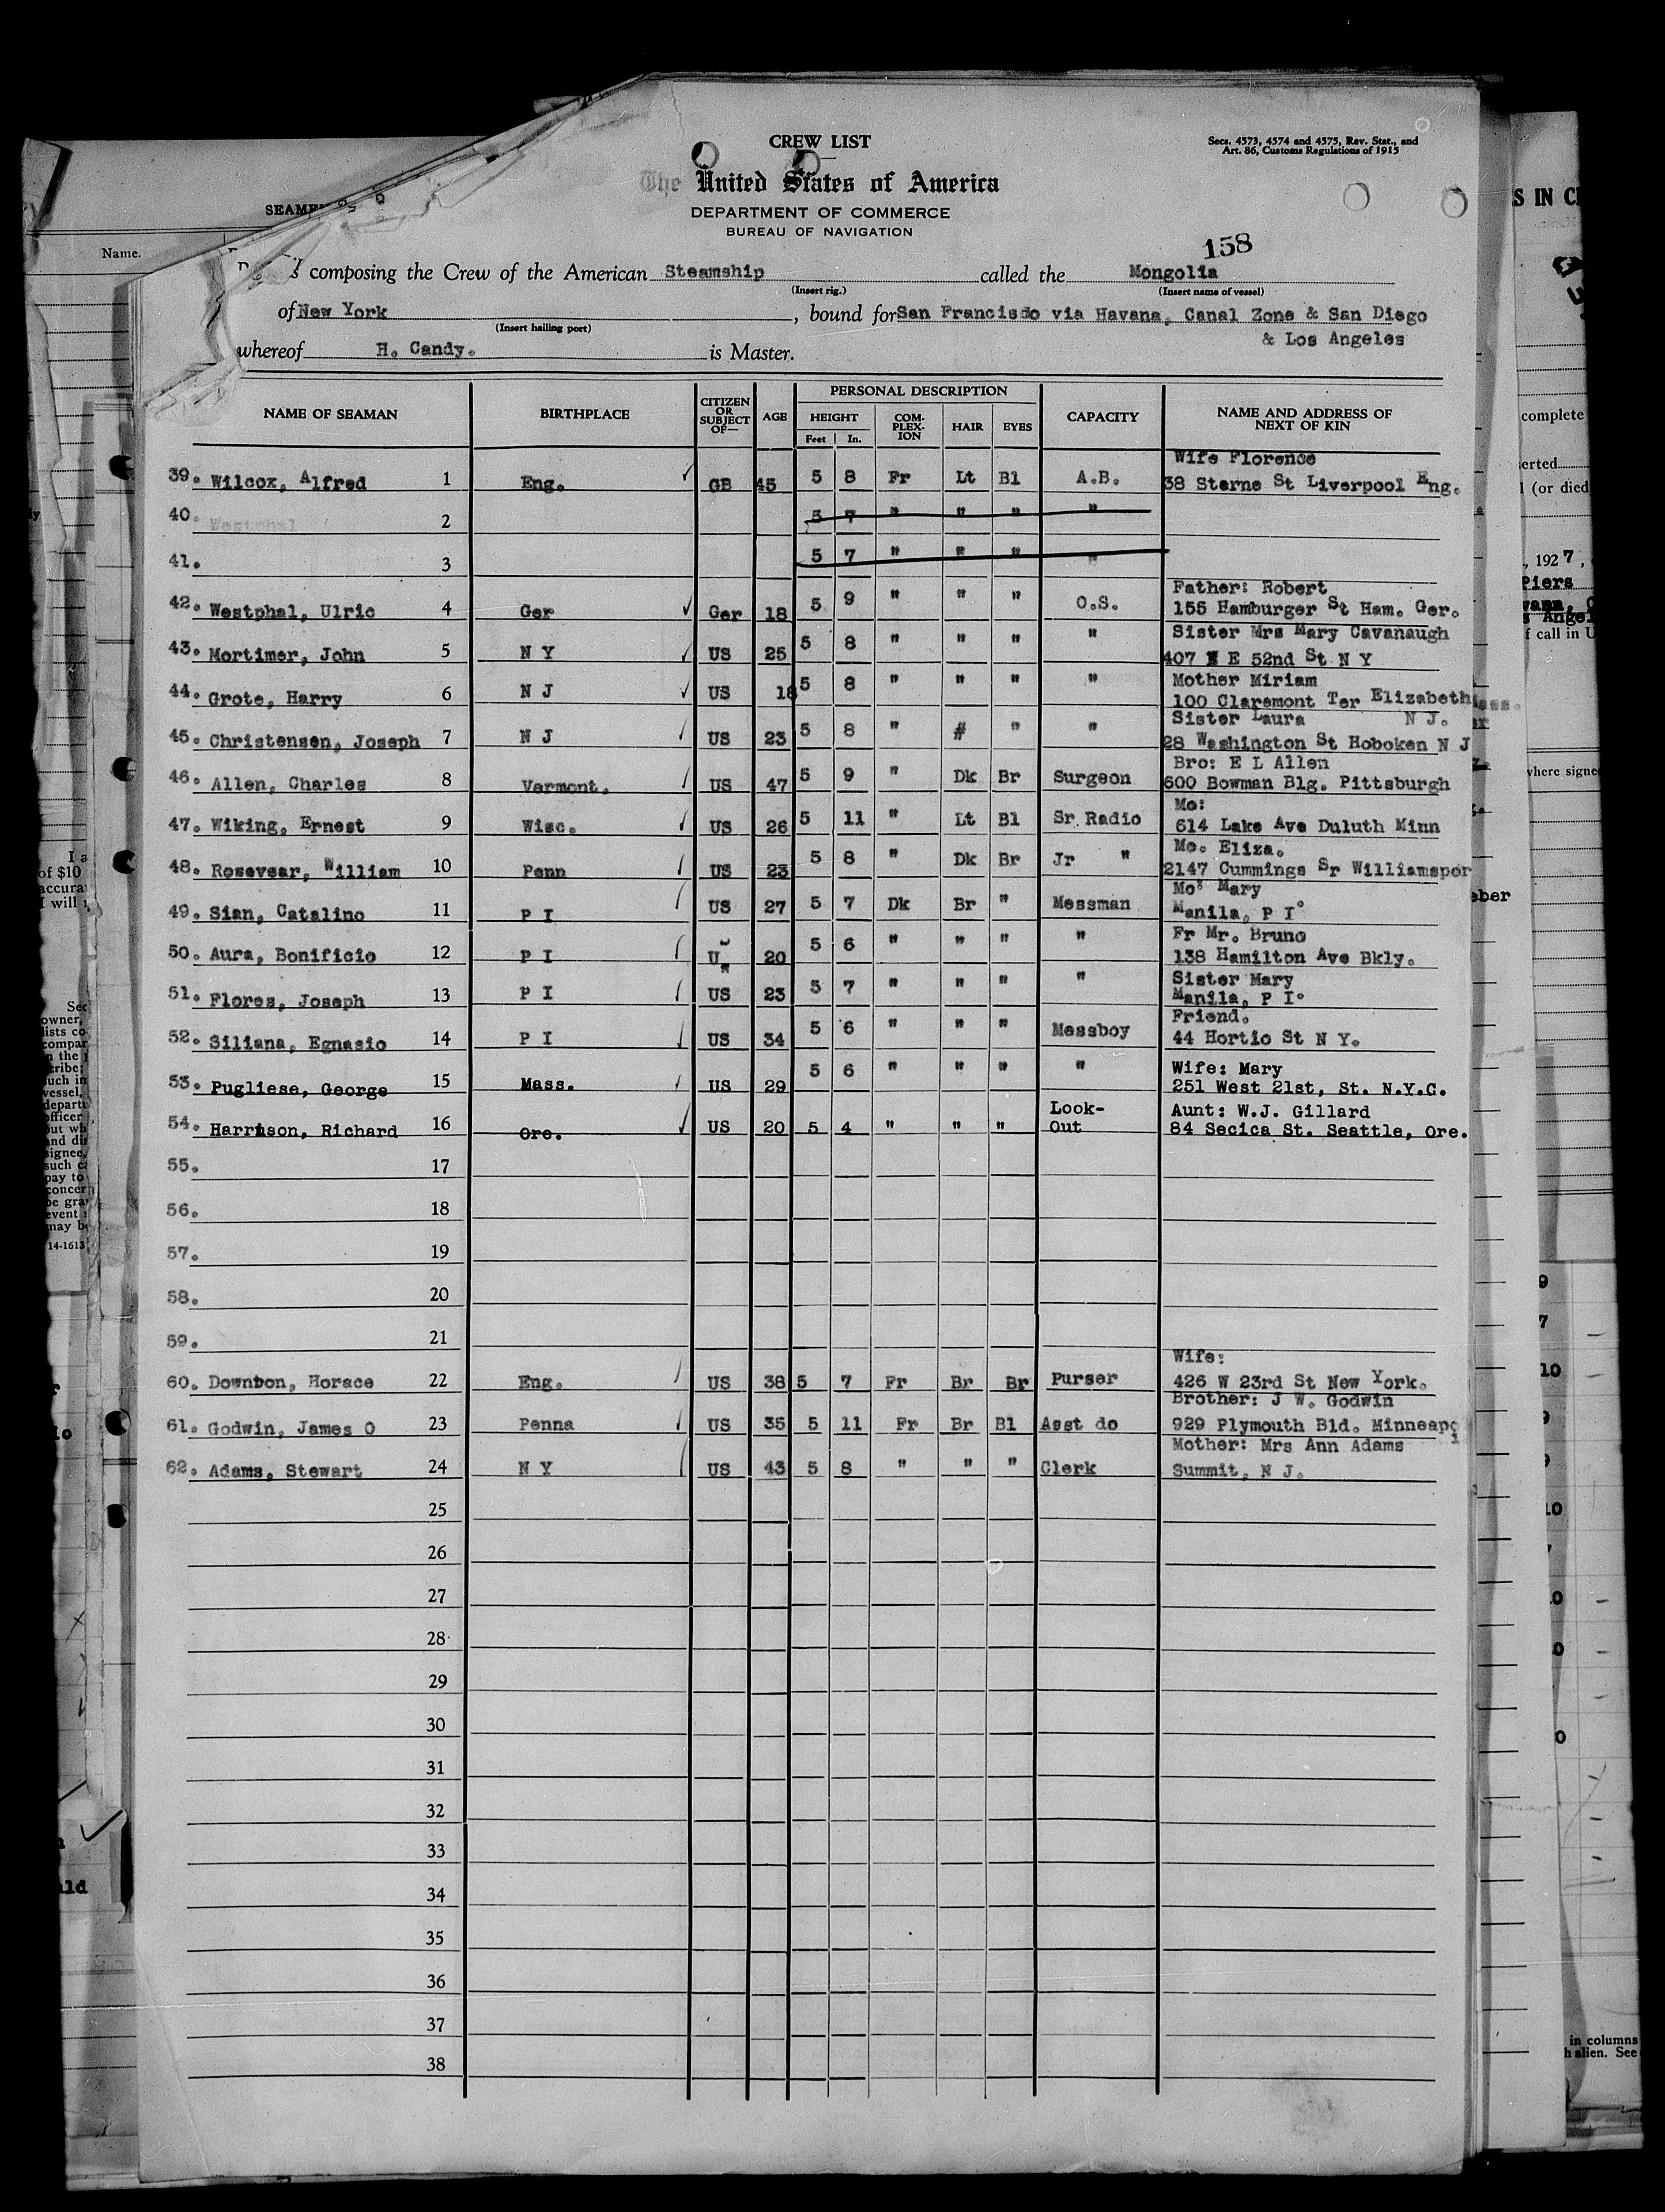 CREW LIST
Secs. 4573, 4574 and 4575, Rev. Stat., and
Art. 86, Customs Regulations of 1915
The United States of America
DEPARTMENT OF COMMERCE
BUREAU OF NAVIGATION
158
composing the Crew of the American Steamship called the Mongolia
(Insert rig.) (Insert name of vessel)
of New York, bound for San Francisdo via Havana, Canal Zone & San Diego
(Insert hailing port) & Los Angeles
whereof H. Candy. is Master.
NAME OF SEAMAN BIRTHPLACE CITIZEN OR SUBJECT OF— AGE PERSONAL DESCRIPTION CAPACITY NAME AND ADDRESS OF NEXT OF KIN
HEIGHT COM-PLEX-ION HAIR EYES
Feet In.
Wife Florence
39. Wilcox, Alfred 1 Eng. ✓ GB 45 5 8 Fr Lt Bl A.B. 38 Sterne St Liverpool Eng.
40. Westphal 2 5 7 " " " "
41. 3 5 7 " " " "
Father: Robert
42. Westphal, Ulric 4 Ger ✓ Ger 18 5 9 " " " O.S. 155 Hamburger St Ham. Ger.
Sister Mrs Mary Cavanaugh
43. Mortimer, John 5 N Y ✓ US 25 5 8 " " " " 407 E 52nd St N Y
Mother Miriam
44. Grote, Harry 6 N J ✓ US 18 5 8 " " " " 100 Claremont Ter Elizabeth
Sister Laura N J.
45. Christensen, Joseph 7 N J ✓ US 23 5 8 " # " " 28 Washington St Hoboken N J
Bro: E L Allen
46. Allen, Charles 8 Vermont. ✓ US 47 5 9 " Dk Br Surgeon 600 Bowman Blg. Pittsburgh
Mo:
47. Wiking, Ernest 9 Wisc. ✓ US 26 5 11 " Lt Bl Sr Radio 614 Lake Ave Duluth Minn
Mo. Eliza.
48. Rosevear, William 10 Penn ✓ US 23 5 8 " Dk Br Jr " 2147 Cummings Sr Williamspor
Mo: Mary
49. Sian, Catalino 11 P I ✓ US 27 5 7 Dk Br " Messman Manila, P I.
Fr Mr. Bruno
50. Aura, Bonificio 12 P I ✓ U 20 5 6 " " " " 138 Hamilton Ave Bkly.
Sister Mary
51. Flores, Joseph 13 P I ✓ US 23 5 7 " " " " Manila, P I.
Friend.
52. Siliana, Egnasio 14 P I ✓ US 34 5 6 " " " Messboy 44 Hortio St N Y.
Wife: Mary
53. Pugliese, George 15 Mass. ✓ US 29 5 6 " " " " 251 West 21st, St. N.Y.C.
Look- Aunt: W.J. Gillard
54. Harrison, Richard 16 Ore. ✓ US 20 5 4 " " " Out 84 Secica St. Seattle, Ore.
55. 17
56. 18
57. 19
58. 20
59. 21
Wife:
60. Downton, Horace 22 Eng. ✓ US 38 5 7 Fr Br Br Purser 426 W 23rd St New York.
Brother: J W. Godwin
61. Godwin, James O 23 Penna ✓ US 35 5 11 Fr Br Bl Asst do 929 Plymouth Bld. Minneapo
Mother: Mrs Ann Adams
62. Adams, Stewart 24 N Y ✓ US 43 5 8 " " " Clerk Summit, N J.
25
26
27
28
29
30
31
32
33
34
35
36
37
38
SEAMEN
Name.
14-1613
S IN
complete
(or died
, 1927,
Piers
f call in U
where signe
in columns
h alien. See